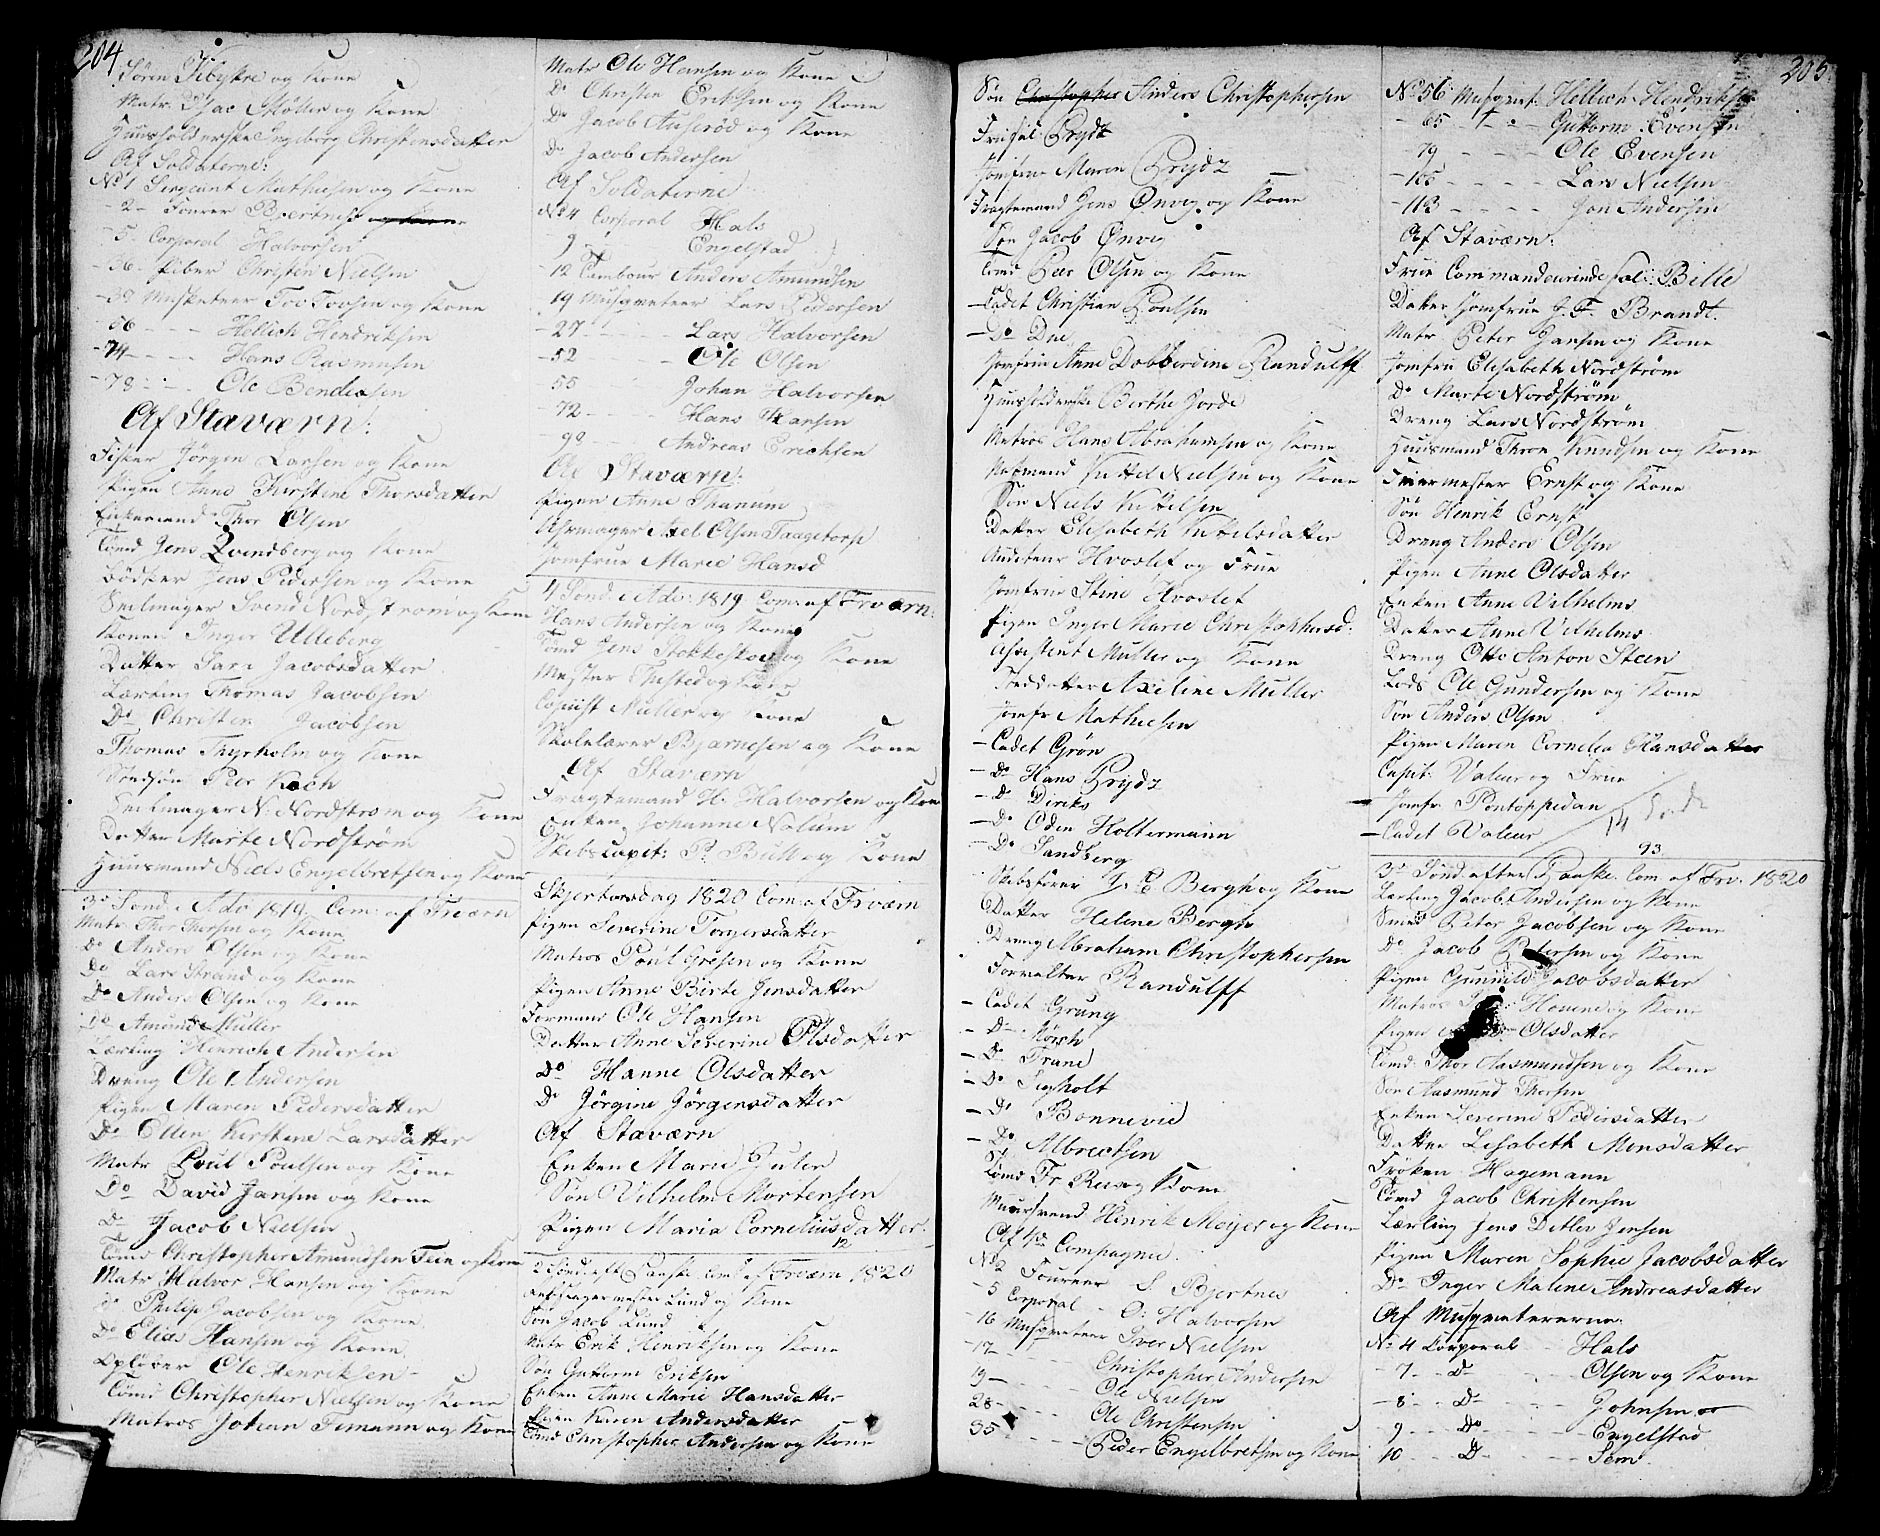 204
Sören Kibykre og Kone
Matr. Isac Möller og Kone
Huusholderske Ingeborg Christensdatter
Af Soldaterne:
No 1 Sergeant Mathiesen og Kone
- 2 - Fourer Bjertnes og Kone
- 5. Corporal Halvorsen
- 36 - Piber Christen Nielsen
- 39 Musketeer Tov Tovsen og Kone
56 - - - Hellich Hendriksen
- 74 - - - Hans Rasmusen
- 78 - - - Ole Bendixsen
Af Staværn:
Fisker Jörgen Larsen og Kone
Pigen Anne Kirstine Thorsdatter
Enkemand Thor Olsen
Tömd Jens Zvendberg og Kone
Bödker Jens Pedersen og Kone
Seilmager Svend Nordstrom og Kone
Konen Inger Ulleberg
Datter Sara Jacobsdatter
Lærling Thomas Jacobsen
Do Christen Jacobsen
Thomas Thyrholm og Kone
Södsön Peer Koch
Seilmager N. Nordstrom og Kone
Datter Marte Nordström
Huusmand Niels Engelbretsen og Kone
3die Sönd. i Adv: 1819. Com: af Frværn
Matr Thor Thorsen og Kone
Do Anders Olsen og Kone
Do Lars Strand og Kone
Do Anders Olsen og Kone
Do Amund Müller
Lærling Henrich Andersen
Dreng Ole Andersen
Pigen Maren Pedersdatter
Do Ellen Kirstine Larsdatter
Matr Poul Poulsen og Kone
Do David Jansen og Kone
Do Jacob Nielsen
Tömd Christopher Amundsen Tein og Kone
Matr Halvor Hansen og Kone
Do Philip Jacobsen og Kone
Do Elias Hansen og Kone
Oplöber Ole Henriksen
Tömd Christopher Nielsen og Kone
Matros Johan Timann og Kone
Matr Ole Hansen og Kone
Do Christen Eriksen og Kone
Do Jacob Auseröd og Kone
Do Jacob Andersen
Af Soldaterne
No 4 Corporal Hals
- 9 - Engelstad
- 12 Tambour Anders Amundsen
19 Musqueteer Lars Pedersen
- 27 - - - Lars Halvorsen
- 52 - - Ole Olsen
55 Johan Halvorsen
- 72 - - - Hans Hansen
- 98 - - - Andreas Erichsen
Af Staværn:
Pigen Anne Thanum
Uhrmager Axel Olsen Taagetorp
Jomfrue Marie Hansd
4 Sönd. i Adv: 1819 Com: af Frværn:
Hans Andersen og Kone
Tömd Jens Stokkeskov og Kone
Mester Thisted og Kone
Copiist Müller og Kone
Skolelærer Bjarnesen og Kone
Af Staværn
Fragtemand H. Halvorsen og Kone
Enken Johanne Nalum
Skibscapit: P. Bull og Kone
Skjertorsdag 1820 Com: af Frværn
Pigen Severine Torgersdatter
Matros Poul Gresen og Kone
Pigen Anne Birte Jensdatter
Formand Ole Hansen
Datter Anne Severine Olsdatter
Do Hanne Olsdatter
Do Jörgine Jörgensdatter
Af Staværn
Enken Marie Guler
Sön Vilhelm Mortensen
Pigen Maria Corneliusdatter
12
2 Sönd: eft Paaske Com: af Frværn 1820
Lund og Kone
Sön Jacob Lund
Matr Erik Henriksen og Kone
Sön Guttorm Eriksen
Enken Anne Marie Hansdatter
Pigen Karen Andersdatter
Tömd Christopher Andersen og Kone
205
Sön Christopher Anders Christophersen
Frusal Brydtz
Jomfrue Maren Brydtz
Fragtemand Jens Önvig og Kone
Sön Jacob Önvig
Tömd Peer Olsen og Kone
- Cadet Christian Poulsen
- Do Due
Jomfrue Anne Dobberdine Randulff
Huusholderske Berthe Jorde
Matros Hans Abrahamsen og Kone
Kittel Nielsen og Kone
Sön Niels Kittelsen
Datter Elisabeth Kittelsdatter
Auditeur Hvoslef og Frue
Jomfrue Stine Hvoslef
Pigen Inger Marie Christophersd:
Assistent Müller og Kone
Axeline Müller
Jomfr Mathiesen
- Cadet Grön
- Do Hans Brydtz
- Do Diriks
- Do Oden Holtermann
- Do Sandberg
Skibsförer J. E. Bergh og Kone
Datter Helene Bergh
Dreng Abraham Christophersen
Forvalter Randulff
- Cadet Grung
- Do Mörch
- Do Trane
- Do Sigholt
- Do Bonnevie
- Do Albrectsen
Tömd Fr Reis og Kone
Muursvend Henrik Meijer og Kone
Af 4de Compagnie
No 2 Foureer S. Bjertnes
- 5 Corporal - O: Halvorsen
- 16 Musqueteer Iver Nielsen
- 17 - - - Christopher Andersen
19 - - - Ole Nielsen
28 - - - Ole Christensen
35 - - - Peder Engelbretsen og Kone
No 56 Musquet: Hellich Hendriksen
- 65 - - - Guttorm Evensen
- 79 - - - Ole Evensen
- 105 - - - Lars Nielsen
- 113 - - - Jon Andersen
Af Staværn:
Frue Commandeurinde sal: Bille
Datter Jomfrue J. F. Brandt
Matr Peter Jansen og Kone
Jomfru Elisabeth Nordström
Do Marte Nordström
Dreng Lars Nordström
Huusmand Thron Knudsen og Kone
Fuermester Ernst og Kone
Sön Henrik Ernst
Dreng Anders Olsen
Pigen Anne Olsdatter
Enken Anne Vilhelms
Datter Anne Vilhelms
Dreng Otto Anton Steen
Lods Ole Gundersen og Kone
Sön Anders Olsen
Pigen Maren Cornelia Hansdatter
Capit: Valeur og Frue
- Jomfr. Pontoppidan
- Cadet Valeur
93
3de Sönd. efter Paaske. Com. af Frv. 1820
Lærling Jacob Andersen og Kone
Smed Peter Jacobsen og Kone
Do Jacob Petersen og Kone
Pigen Gunnild Jacobsdatter
Matros Hovene og Kone
Pigen Olsdatter
Tömd Thor Aasmundsen og Kone
Sön Aasmund Thorsen
Enken Severine Pedersdatter
Datter Lisabeth Monsdatter
Fröken Hagemann
Tömd Jacob Christensen
Lærling Jens Detlev Jensen
Pigen Maren Sophie Jacobsdatter
Do Inger Malene Andreasdatter
Af Musqueterernae:
No 4 Corporal - Hals
- 7 - - Do - - Olsen og Kone
- 8 - - Do - - Johnsen
- 9 - - Do - - Engelstad
10 - - Do - - Sem